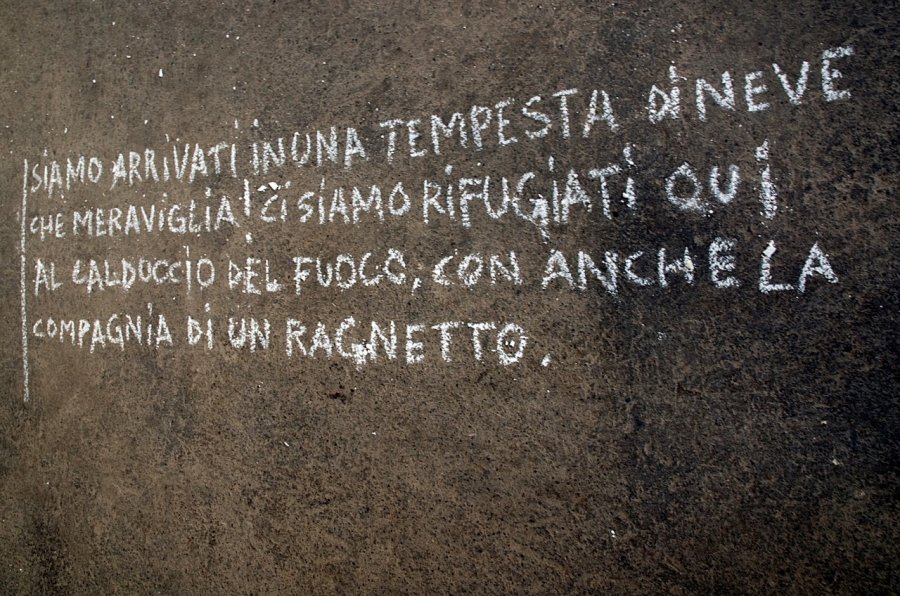 SIAMO ARRIVATI IN UNA TEMPESTA DI NEVE
CHE MERAVIGLIA! CI SIAMO RIFUGIATI QUI
AL CALDUCCIO DEL FUOCO, CON ANCHE LA
COMPAGNIA DI UN RAGNETTO.